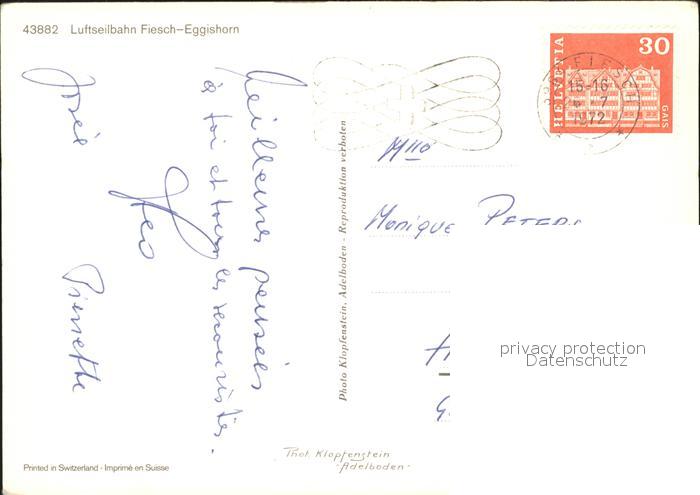 43882 Luftseilbahn Fiesch–Eggishorn
HELVETIA
30
GAIS
FIESCH
15-16
7
1972
Meilleures pensées
à toi et tous les
José
Geo
Pierrette
Photo Klopfenstein, Adelboden - Reproduktion verboten
Mlle
Monique
privacy protection
Datenschutz
Phot. Klopfenstein
-Adelboden-
Printed in Switzerland - Imprimé en Suisse